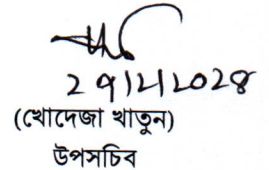 ২৭/২/২০২৪
(খোদেজা খাতুন)
উপসচিব